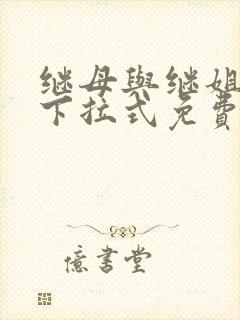 继母與继姐
下拉式免費
億書堂